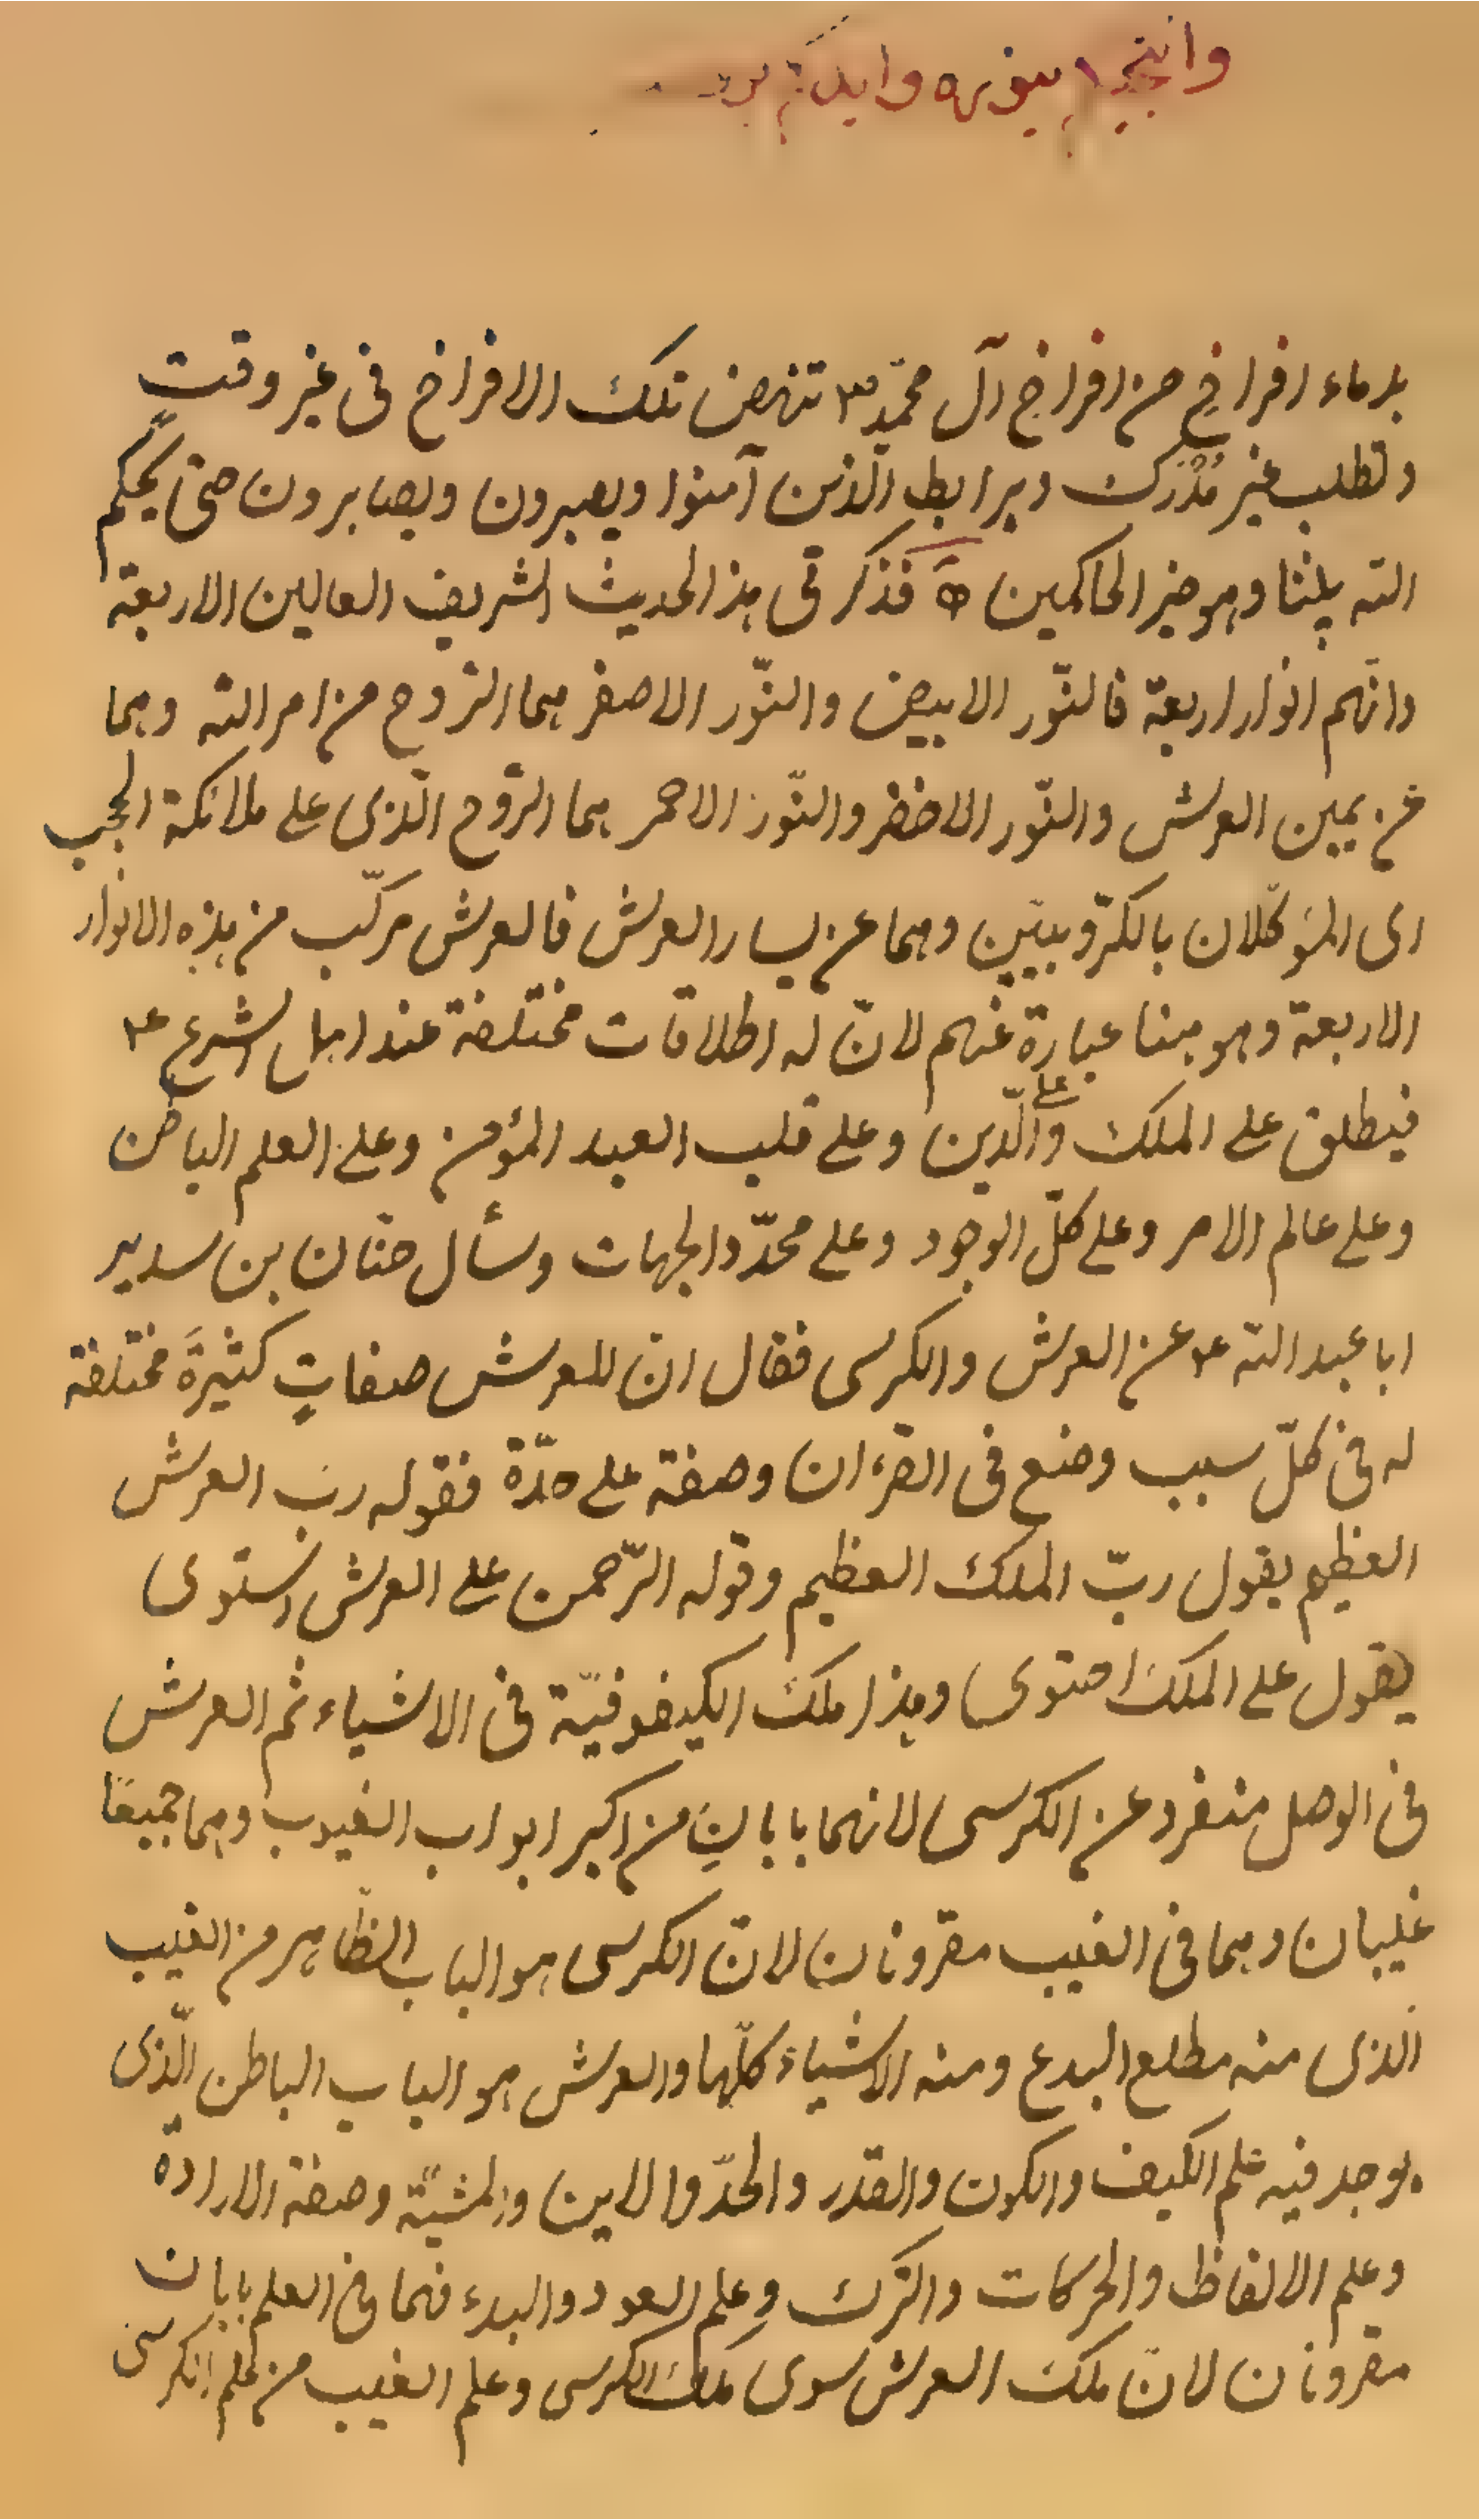 بدماء افراخٍ من افراخ آل محمّد ص تنهض تلك الافراخ فى غير وقتٍ
وتطلب غير مُدْرَك ويرابط الّذين آمنوا ويصبرون ويصابرون حتى يحكم
الله بيننا وهو خير الحاكمين ه فذكر فى هذا الحديث الشريف العالين الاربعة
وانّهم انوار اربعة فالنّور الابيض والنّور الاصفر هما الرّوح من امر الله وهما
عن يمين العرش والنّور الاخضر والنّور الاحمر هما الرّوح الّذى على ملائكة الحجب
اى المؤكّلان بالكرّوبيّين وهما عن يسار العرش فالعرش مركّب من هذه الانوار
الاربعة وهو هنا عبارة عنهم لانّ له اطلاقات مختلفة عند اهل الشرع ع
فيطلق على الملك وعلى الدّين وعلى قلب العبد المؤمن وعلى العلم الباطن
وعلى عالم الامر وعلى كلّ الوجود وعلى محدّد الجهات وسأل حنّان بن سدير
ابا عبد الله ع عن العرش والكرسى فقال انّ للعرش صفاتٍ كثيرةً مختلفة
له فى كلّ سبب وضع فى القرءان وصفة على حدّة فقوله ربّ العرش
العظيم يقول ربّ الملك العظيم وقوله الرّحمن على العرش استوى
يقول على الملك احتوى وهذا ملك الكيفوفيّة فى الاشياء ثم العرش
فى الوصل منفرد عن الكرسى لانهما بابانِ من اكبر ابواب الغيوب وهما جميعًا
غيبان وهما فى الغيب مقرونان لانّ الكرسى هو الباب الظّاهر من الغيب
الّذى منه مطلع البدع ومنه الاشياء كلّها والعرش هو الباب الباطن الّذى
يوجد فيه علم الكيف والكون والقدر والحدّ والاين والمشيّة وصفة الارادة
وعلم الالفاظ والحركات والترك وعلم العود والبدء فهما فى العلم بابان
مقرونان لانّ ملك العرش سوى ملك الكرسى وعلم الغيب من علم الكرسى